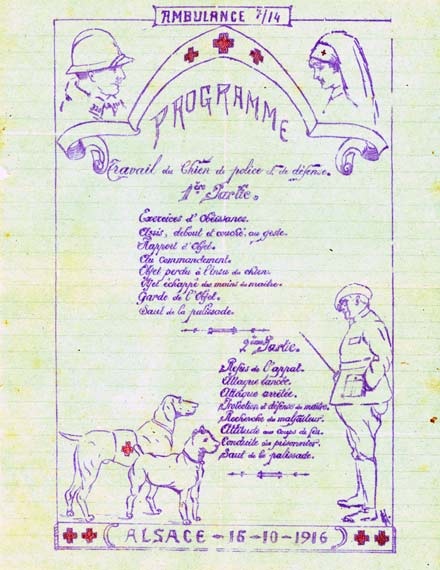 AMBULANCE 7/14
PROGRAMME
Travail du Chien de police et de défense.
1ère Partie.
Exercices d'Obéissance.
Assis, debout et couché, au geste.
Rapport d'Objet.
Au commandement.
Objet perdu à l'insu du chien.
Objet échappé des mains du maître.
Garde de l'Objet.
Saut de la palissade.
2ième Partie.
Refus de l'appat.
Attaque lancée.
Attaque arrêtée.
Protection et défense du maître.
Recherche du malfaiteur.
Attitude aux coups de feu.
Conduite du prisonnier.
Saut de la palissade.
ALSACE - 16-10-1916